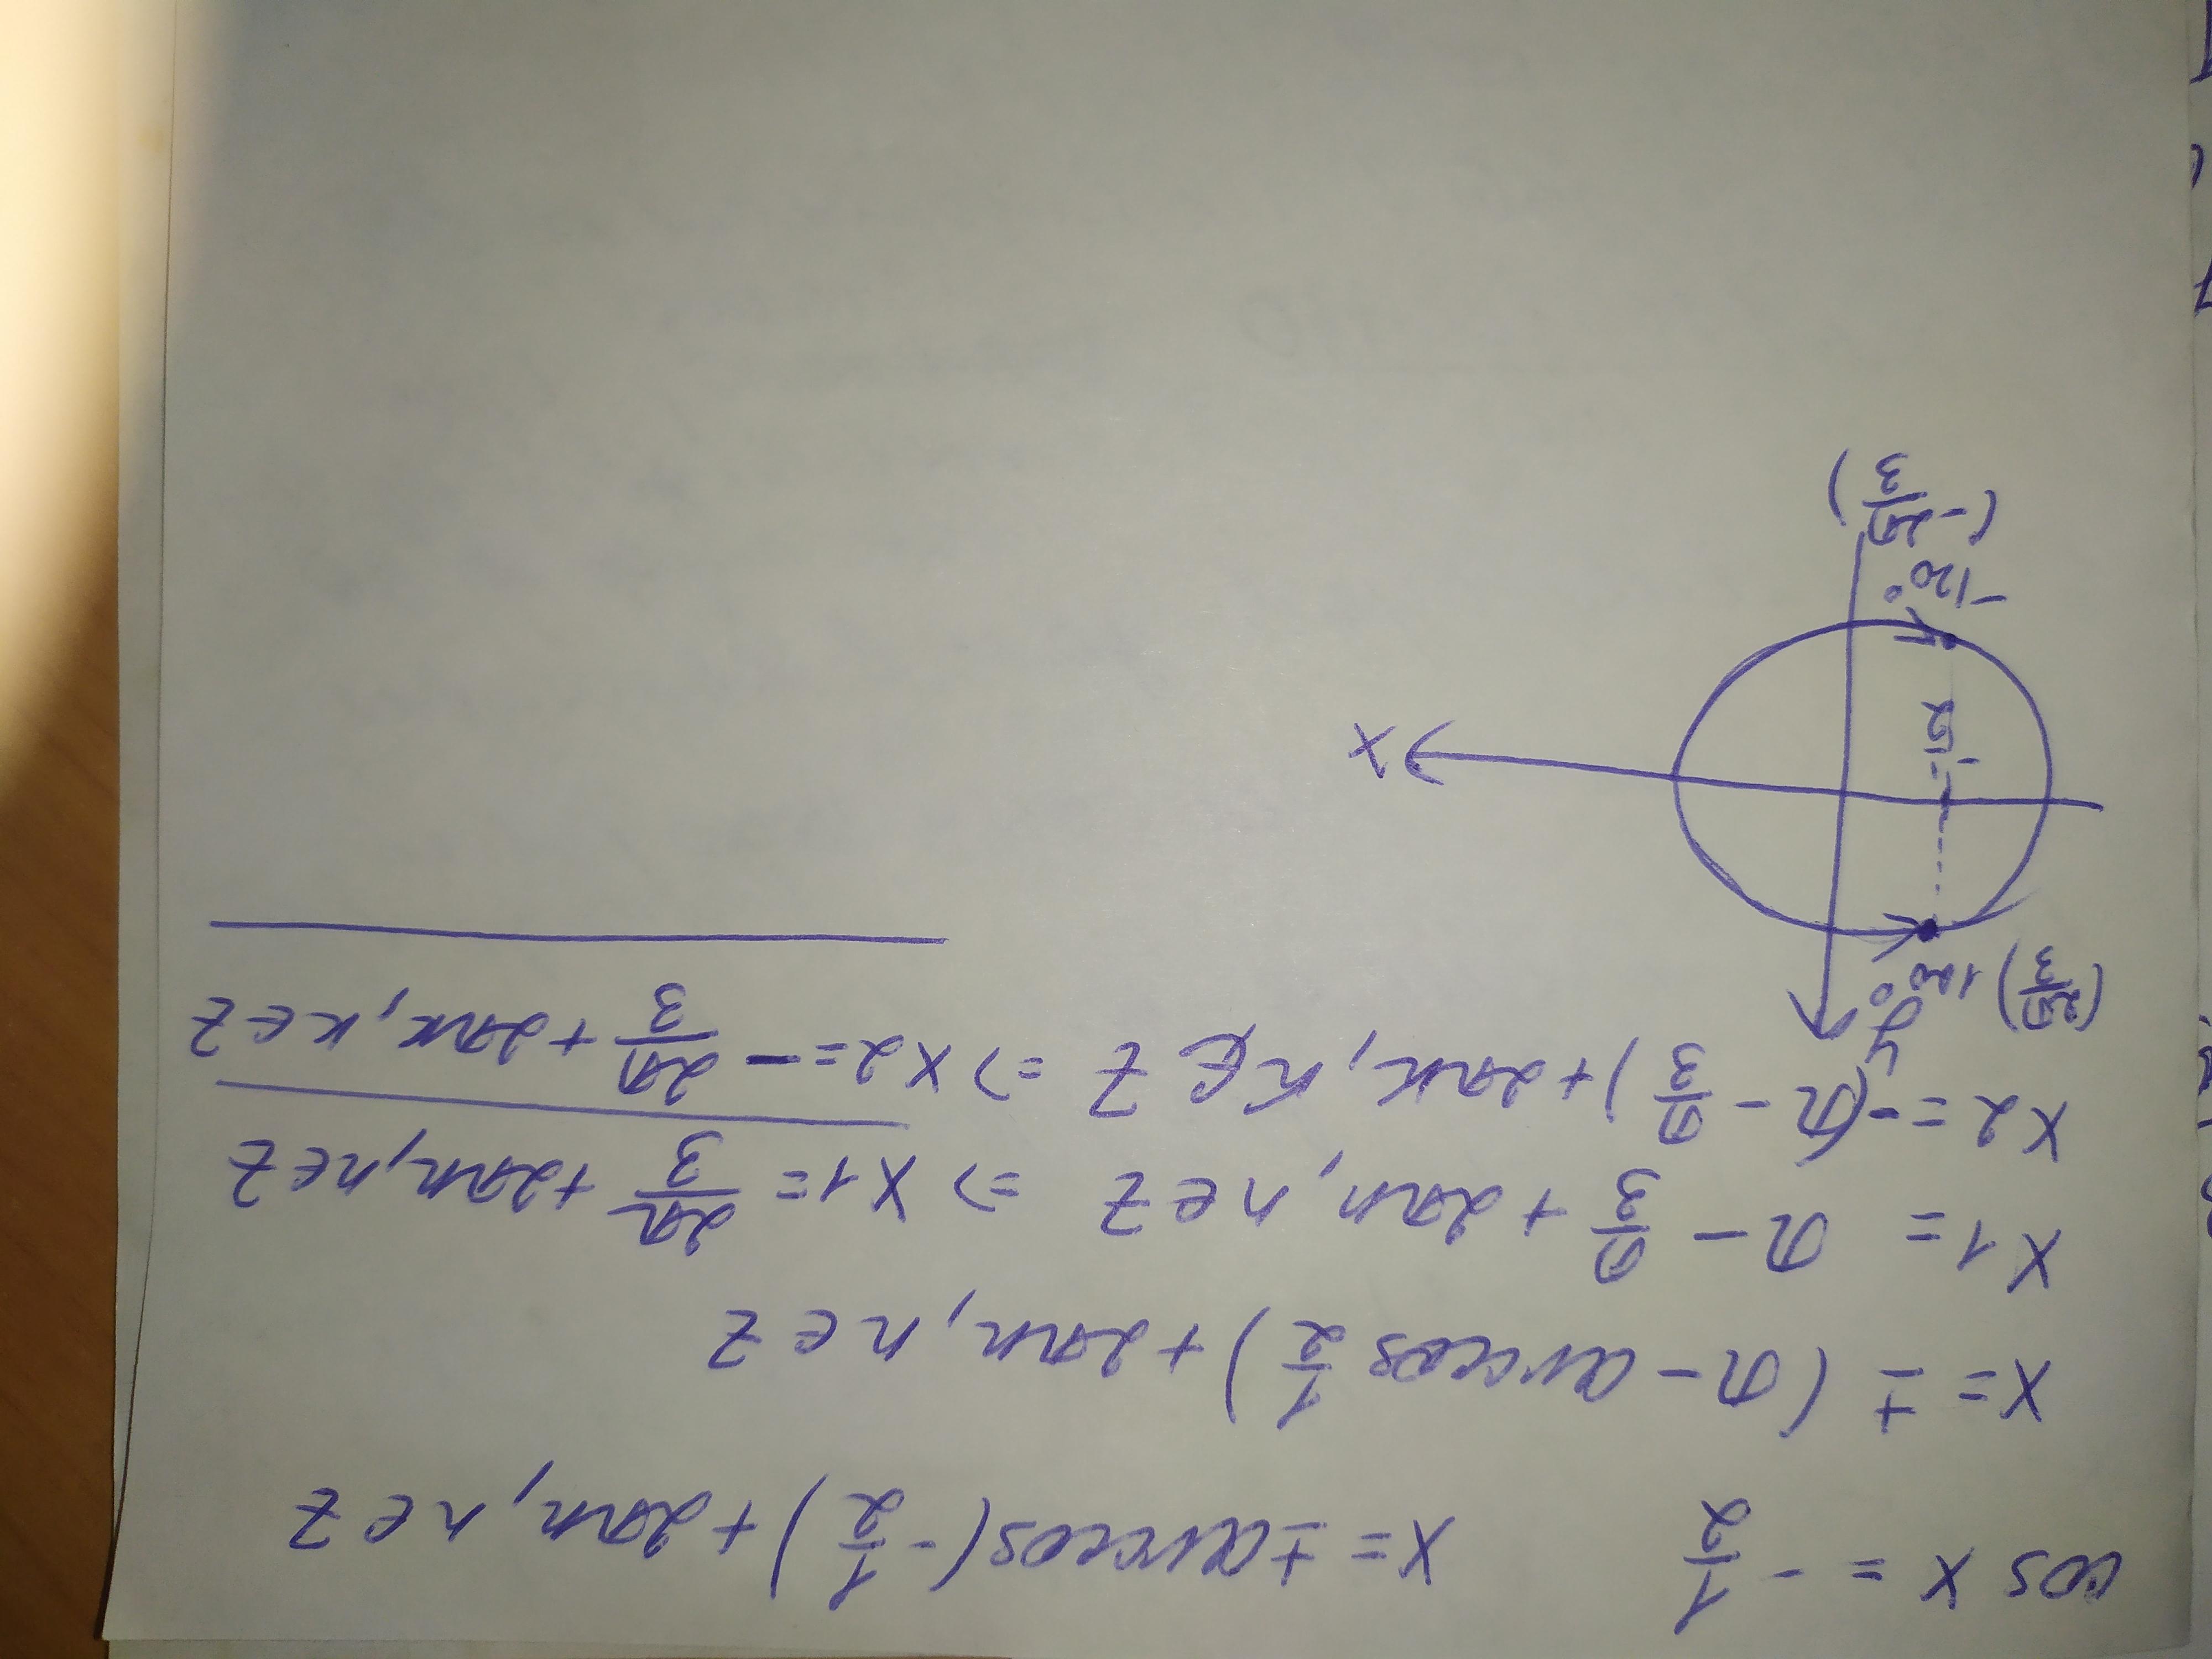 cos x = - 1/2 x = ± arccos(- 1/2) + 2πn, n ∈ Z
x = ± (π - arccos 1/2) + 2πn, n ∈ Z
x1 = π - π/3 + 2πn, n ∈ Z => x1 = 2π/3 + 2πn, n ∈ Z
x2 = -(π - π/3) + 2πk, k ∈ Z => x2 = - 2π/3 + 2πk, k ∈ Z
y
(2π/3) 120°
- 1/2
x
-120°
(- 2π/3)